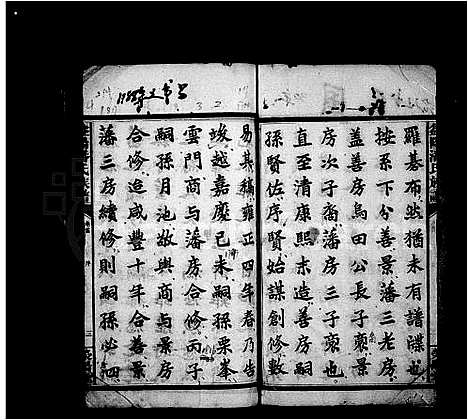 羅碁布然猶未有譜牒也
按系下分善景藩三老房
蓋善房烏田公長子景景
房次子裔藩房三子裔也
直至清康熙末造善房嗣
孫賢佐序賢始謀創修數
易其稿雍正四年春乃告
竣越嘉慶己未嗣孫栗峯
雲門商与藩房合修丙子
嗣孫月池敖與商与景房
合修迨咸豐十年合善景
藩三房續修則嗣孫必細